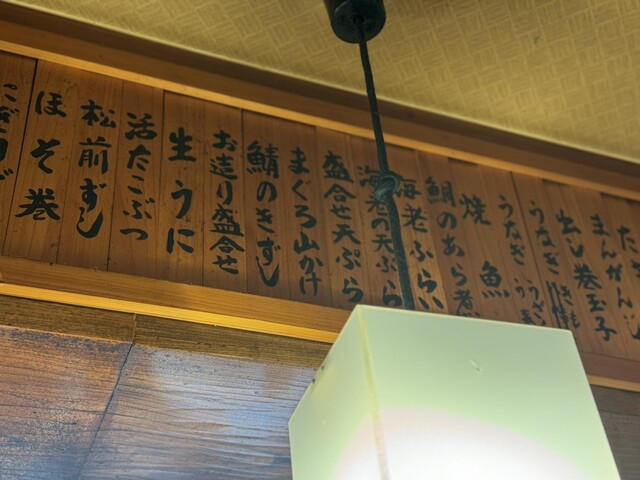 まんがんじ
出し巻玉子
うなぎ
うなぎ
焼魚
鯛のあら煮
海老ふらい
海老の天ぷら
盛合せ天ぷら
まぐろ山かけ
鯖のきずし
お造り盛合せ
生うに
活たこぶつ
松前ずし
ほそ巻
にぎりず